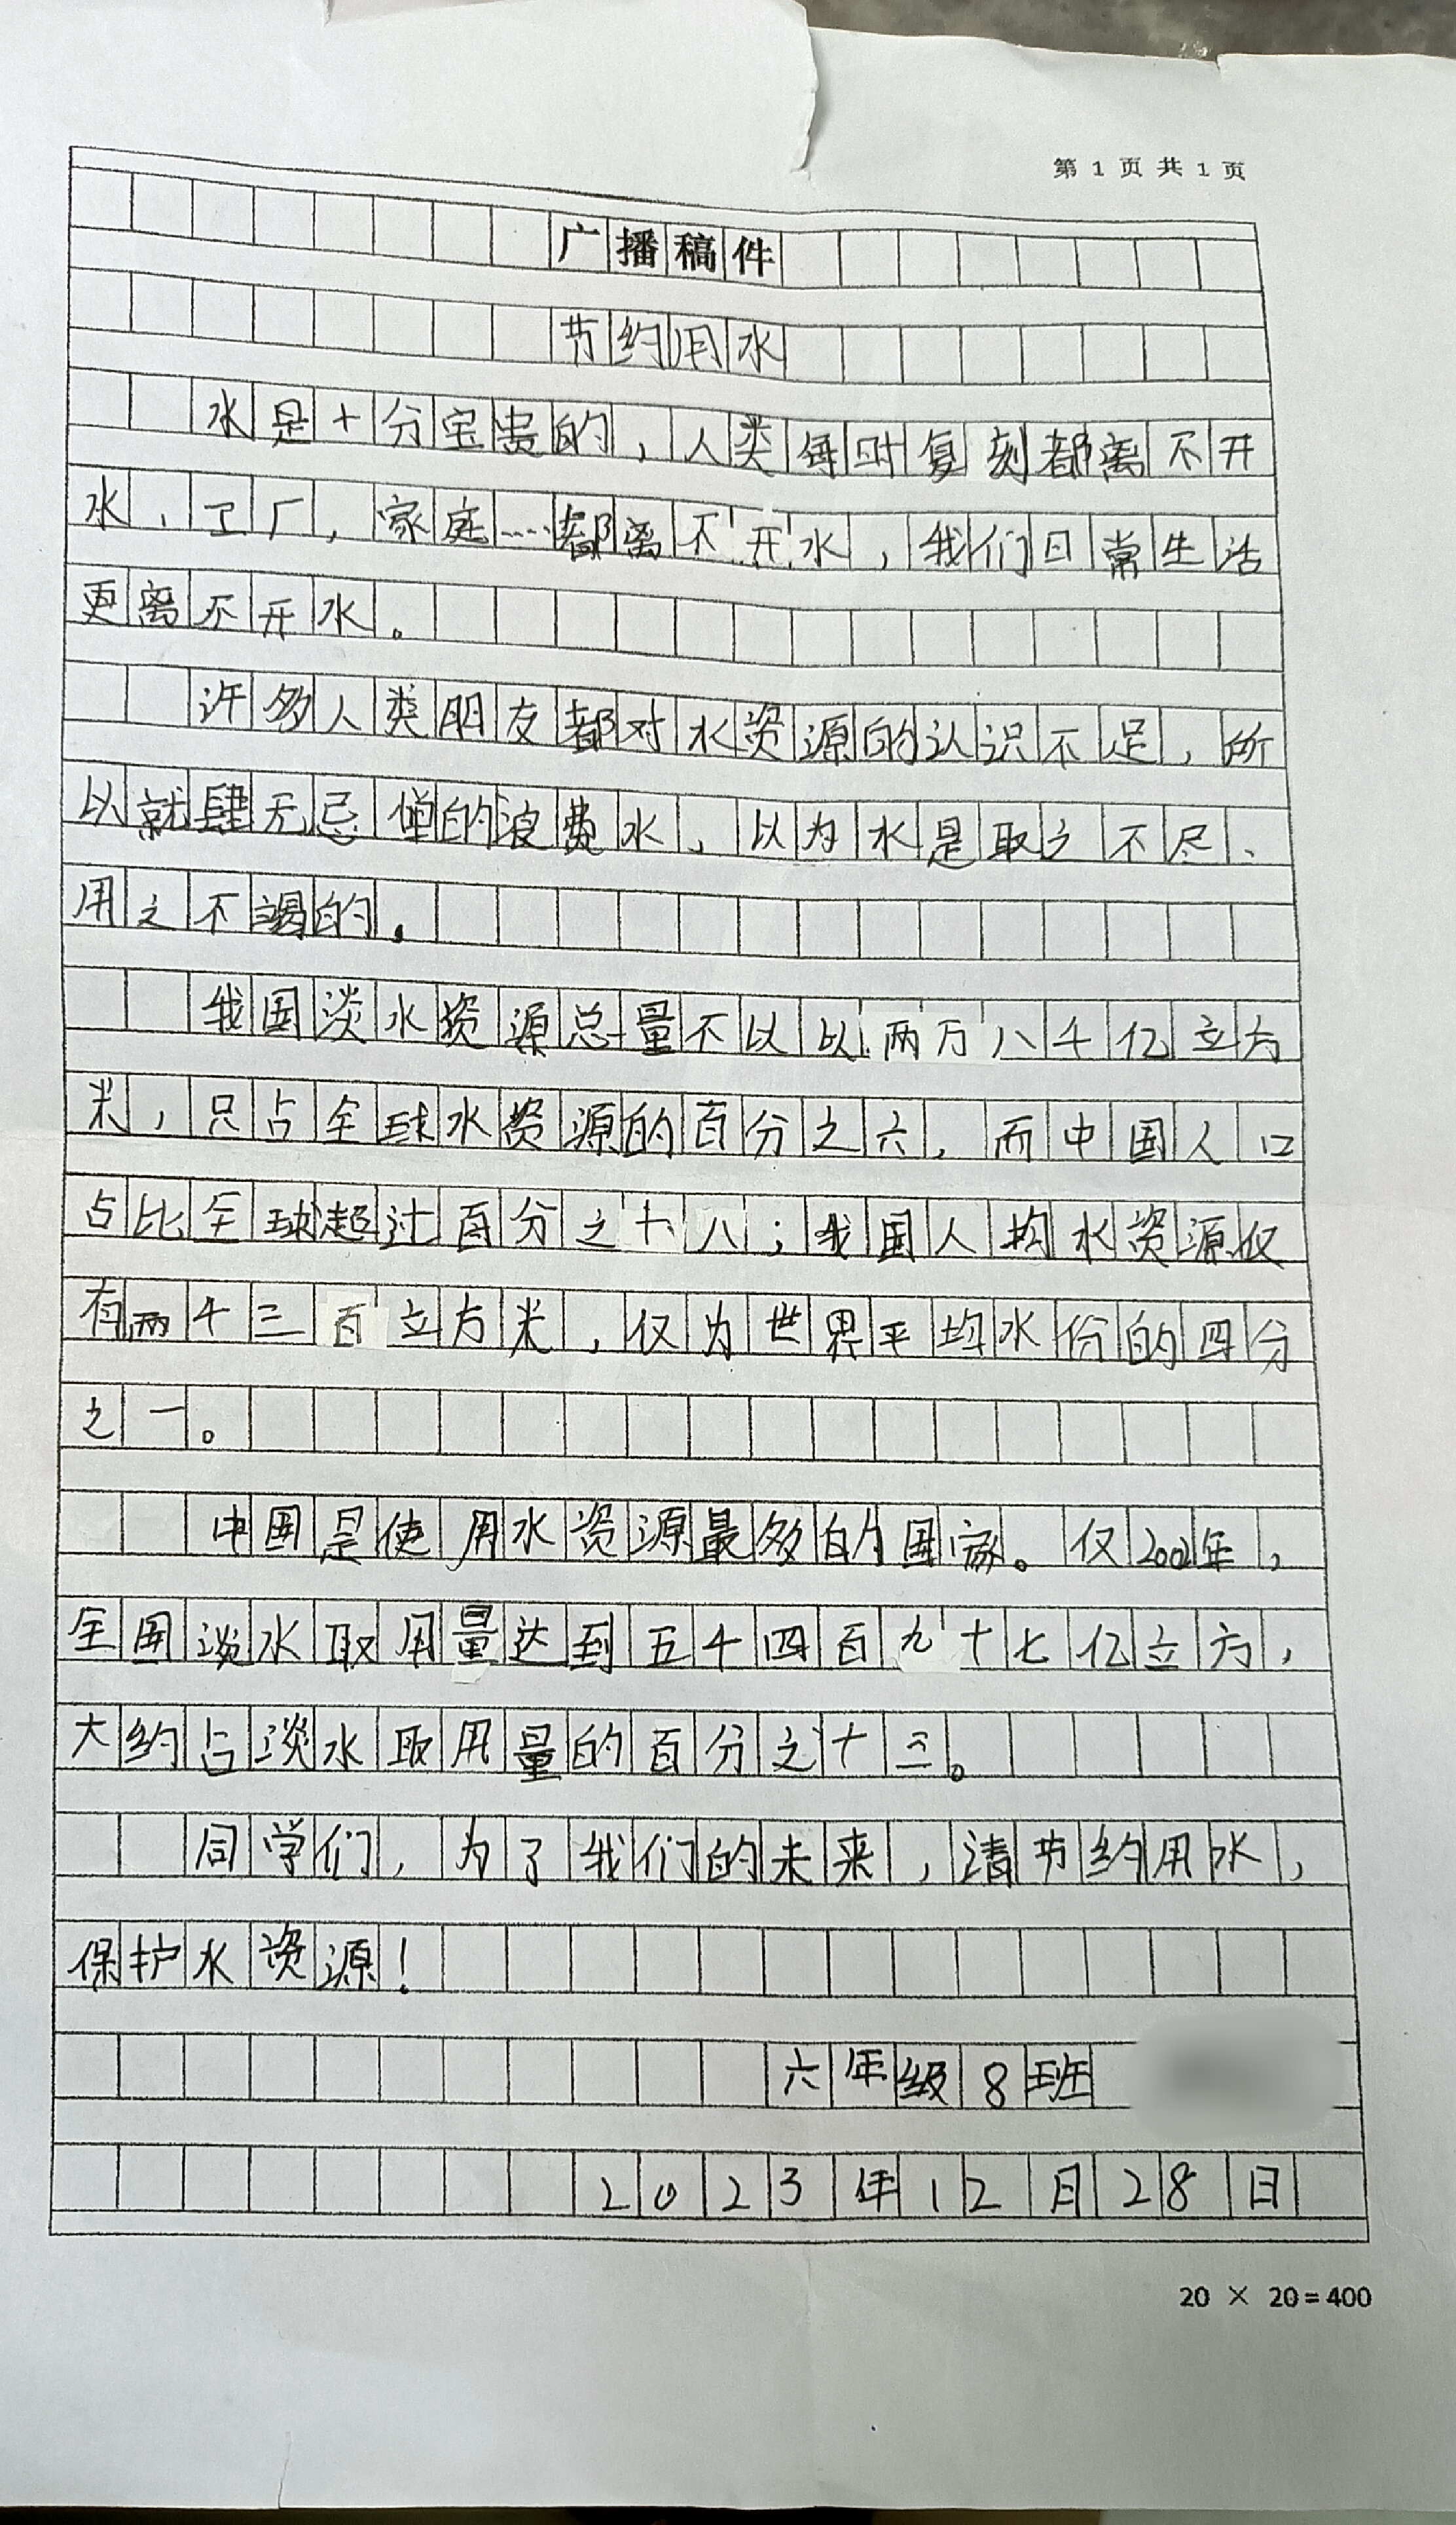 第1页共1页
广播稿件
节约用水
水是十分宝贵的，人类每时复刻都离不开
水，工厂，家庭……都离不开水，我们日常生活
更离不开水。
许多人类朋友都对水资源的认识不足，所
以就肆无忌惮的浪费水，以为水是取之不尽、
用之不竭的。
我国淡水资源总量不以以两万八千亿立方
米，只占全球水资源的百分之六，而中国人口
占比全球超过百分之十八；我国人均水资源仅
有两千三百立方米，仅为世界平均水份的四分
之一。
中国是使用水资源最多的国家。仅2002年，
全国淡水取用量达到五千四百九十七亿立方，
大约占淡水取用量的百分之十三。
同学们，为了我们的未来，请节约用水，
保护水资源！
六年级8班
2023年12月28日
20×20=400